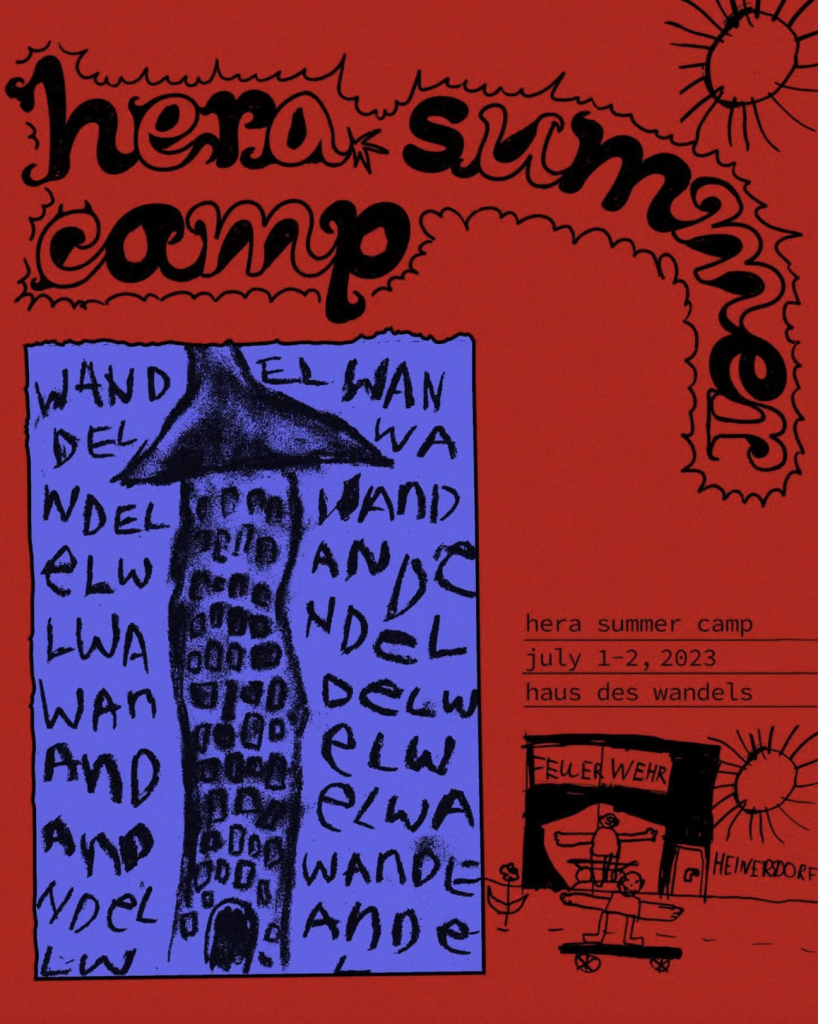 hera summer
camp
WAND EL WAN
DEL WA
NDEL WAND
eLW ANDe
LWA NDeL
WAn DeLW
AnD eLW
AnD eLWA
NDeL WAnDE
LW AnDe
L
hera summer camp
july 1-2, 2023
haus des wandels
FEUERWEHR
HEINERDORF